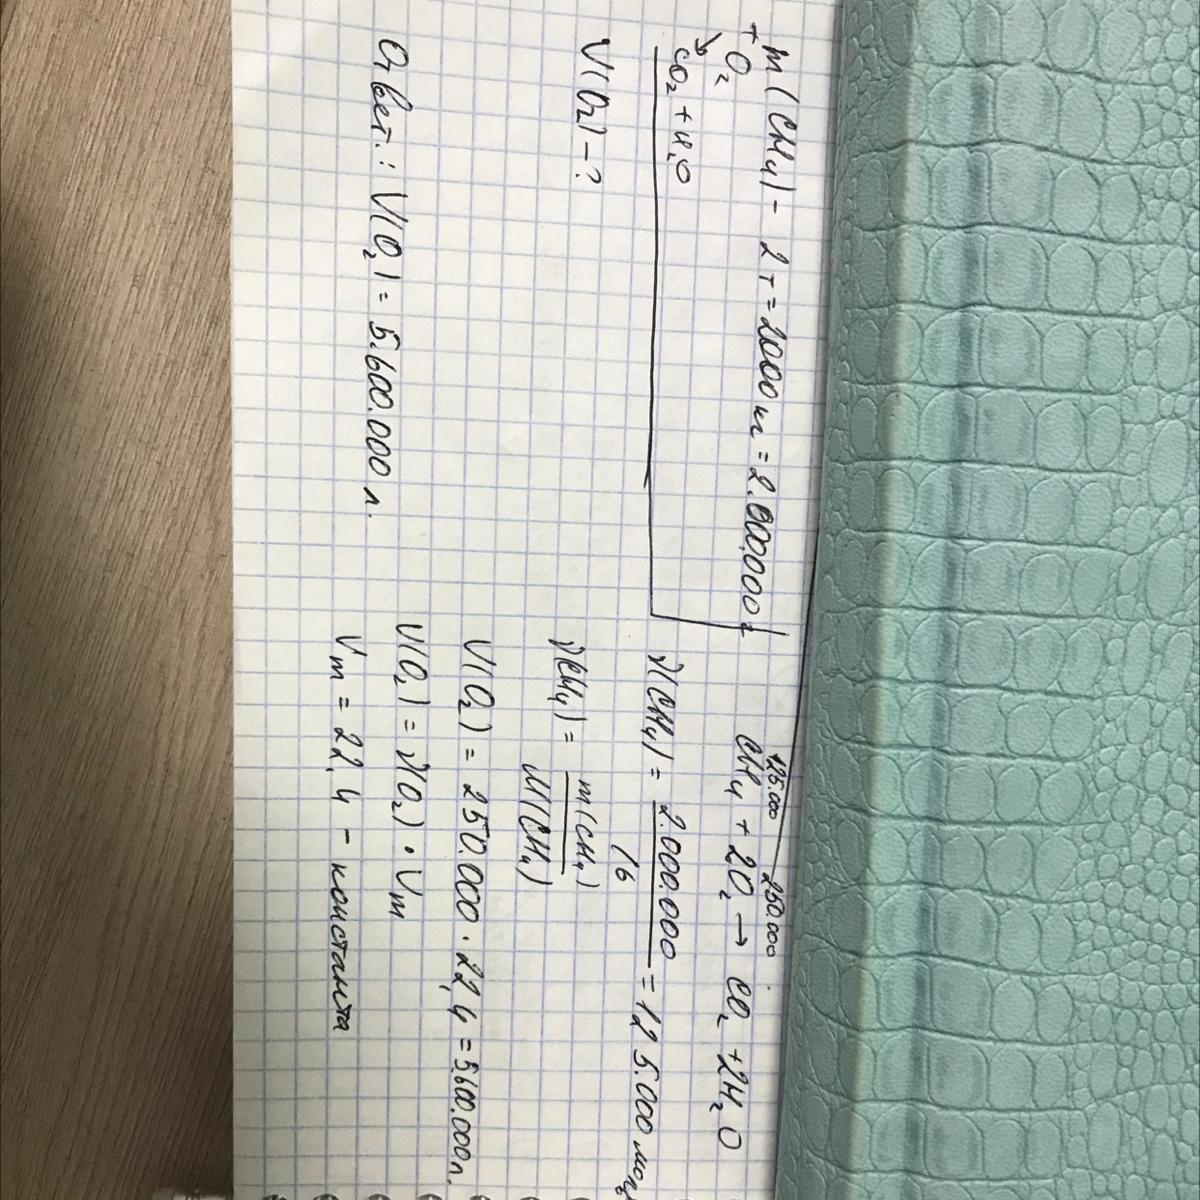 m(CH4) - 2 т = 2000 кг = 2.000.000 г
+ O2
↘
CO2 + H2O
V(O2) - ?
125.000 250.000
CH4 + 2O2 → CO2 + 2H2O
ν(CH4) = 2.000.000 / 16 = 125.000 моль
ν(CH4) = m(CH4) / M(CH4)
V(O2) = 250.000 · 22,4 = 5.600.000 л.
V(O2) = ν(O2) · Vm
Vm = 22,4 - константа
Ответ.: V(O2) = 5.600.000 л.